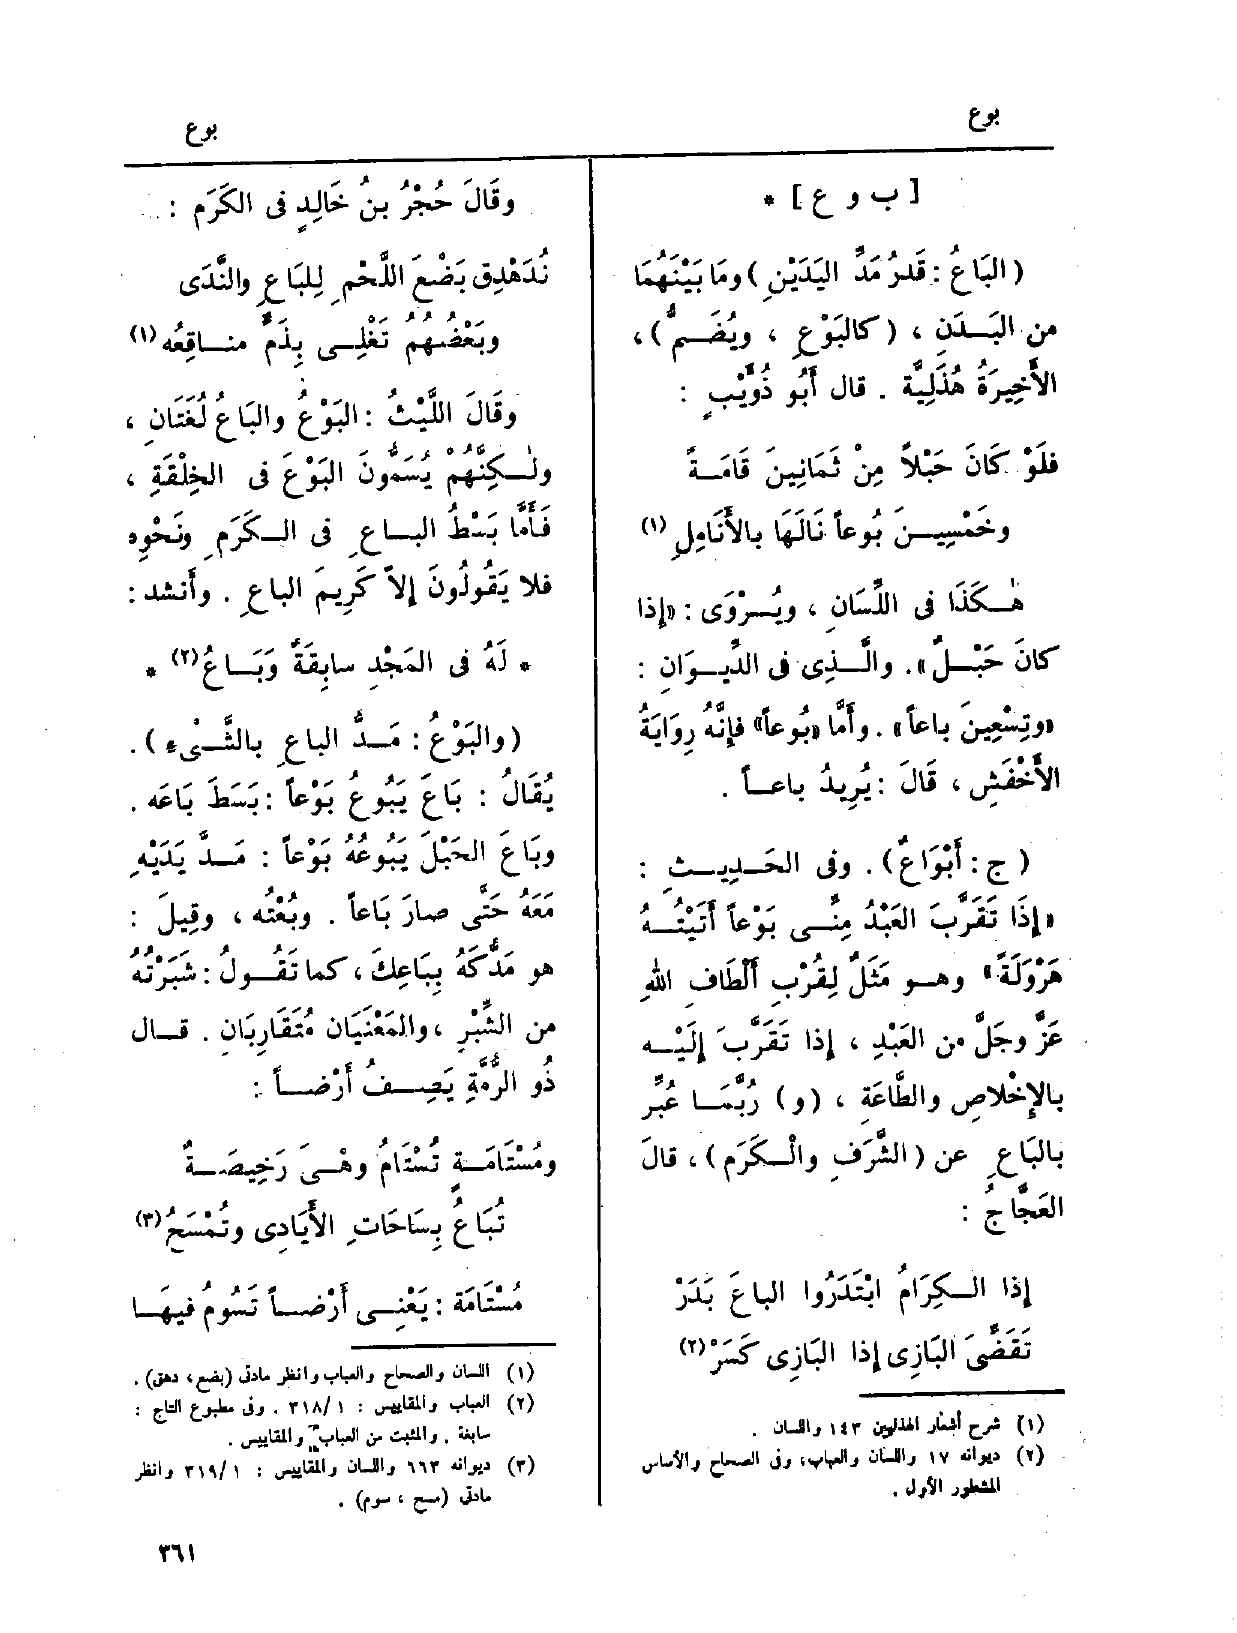 بوع
بوع
[ ب و ع ] *
( البَاعُ : قَدرُ مَدِّ اليَدَيْنِ ) ومَا بَيْنَهُمَا
من البَـــدَنِ ، ( كالبَوْعِ ، ويُضَــمُّ ) ،
الأَخِيرَةُ هُذَلِيَّة . قال أَبُو ذُؤَيْبٍ :
فلَوْ كَانَ حَبْلاً مِنْ ثَمَانِينَ قَامَــةً
وخَمْسِيــنَ بُوعاً نَالَهَا بالأَنَامِلِ (١)
هٰــكَذَا فى اللِّسَانِ ، ويُــرْوَى : «إذا
كانَ حَبْــلٌ» . والَّــذِى فى الدِّيــوَانِ :
«وتِسْعِينَ باعاً» . وأَمَّا «بُوعاً» فإنَّهُ رِوَايَةُ
الأَخْفَشِ ، قَالَ : يُرِيدُ باعــاً .
( ج : أَبْوَاعٌ ) . وفى الحَــدِيــثِ :
«إذَا تَقَرَّبَ العَبْدُ مِنِّــى بَوْعاً أَتَيْتُــهُ
هَرْوَلَةً» وهــو مَثَلٌ لِقُرْبِ أَلْطَافِ اللهِ
عَزَّ وجَلَّ من العَبْدِ ، إذا تَقَرَّبَ إلَيْــه
بالإخْلاصِ والطَّاعَةِ ، (و) رُبَّمَــا عُبِّر
بالبَاعِ عن ( الشَّرَفِ والْــكَرَمِ ) ، قالَ
العَجَّاجُ :
إذا الــكِرَامُ ابْتَدَرُوا الباعَ بَدَرْ
تَقَضِّىَ البَازِى إذا البَازِى كَسَرْ (٢)
(١) شرح أشعار الهذليين ١٤٣ واللسان .
(٢) ديوانه ١٧ واللسان والعباب، وفى الصحاح والأساس
المشطور الأول .
وقَالَ حُجْرُ بنُ خَالِدٍ فى الكَرَمِ :
نُدَهْدِق بَضْعَ اللَّحْمِ لِلبَاعِ والنَّدَى
وبَعْضُهُمُ تَغْلِــى بِذَمٍّ منــاقِعُه (١)
وقَالَ اللَّيْثُ : البَوْعُ والبَاعُ لُغَتَانِ ،
ولٰــكِنَّهُمْ يُسَمُّونَ البَوْعَ فى الخِلْقَةِ ،
فَأَمَّا بَسْطُ البــاعِ فى الــكَرَمِ ونَحْوِه
فلا يَقُولُونَ إلاّ كَرِيمَ الباعِ . وأَنشد :
* لَهُ فى المَجْدِ سابِقَةٌ وَبَــاعُ (٢) *
( والبَوْعُ : مَــدُّ الباعِ بالشَّــىْءِ ) .
يُقَالُ : بَاعَ يَبُوعُ بَوْعاً : بَسَطَ بَاعَه .
وبَاعَ الحَبْلَ يَبُوعُهُ بَوْعاً : مَــدَّ يَدَيْهِ
مَعَهُ حَتَّى صارَ بَاعاً . وبُعْتُه ، وقِيلَ :
هو مَدُّكَهُ بِبَاعِكَ ، كما تَقُــولُ : شَبَرْتُهُ
من الشِّبْرِ ، والمَعْنَيَانِ مُتَقَارِبَانِ . قــال
ذُو الرُّمَّةِ يَصِــفُ أَرْضــاً :
ومُسْتَامَــةٍ تُسْتَامُ وهْــىَ رَخِيصَــةٌ
تُبَاعُ بِسَاحَاتِ الأَيَادِى وتُمْسَحُ (٣)
مُسْتَامَة : يَعْنِــى أَرْضــاً تَسُومُ فيهَــا
(١) اللسان والصحاح والعباب وانظر مادتى (بضع، دهق) .
(٢) العباب والمقاييس : ١ / ٣١٨ . وفى مطبوع التاج :
سابغة . والمثبت من العباب والمقاييس .
(٣) ديوانه ٦٦٣ واللسان والمقاييس : ١ / ٣١٩ وانظر
مادتى (مسح ، سوم) .
٣٦١